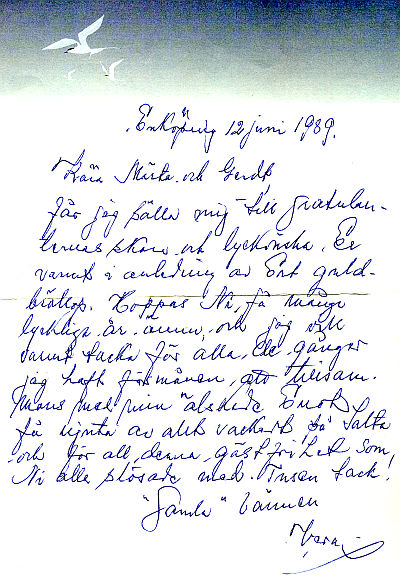 Enköping 12 juni 1989.
Kära Märta och Gerdt,
får jag sälla mig till gratulan-
ternas skara och lyckönska Er
varmt i anledning av Ert guld-
bröllop. Hoppas Ni få många
lyckliga år ännu, och jag vill
varmt tacka för alla de gånger
jag haft förmånen, att tillsam-
mans med min älskade Enok
få njuta av allt vackert på Salta
och för all denna gästfrihet som
Ni alla slösade med. Tusen tack!
"Gamla" vännen
Vera